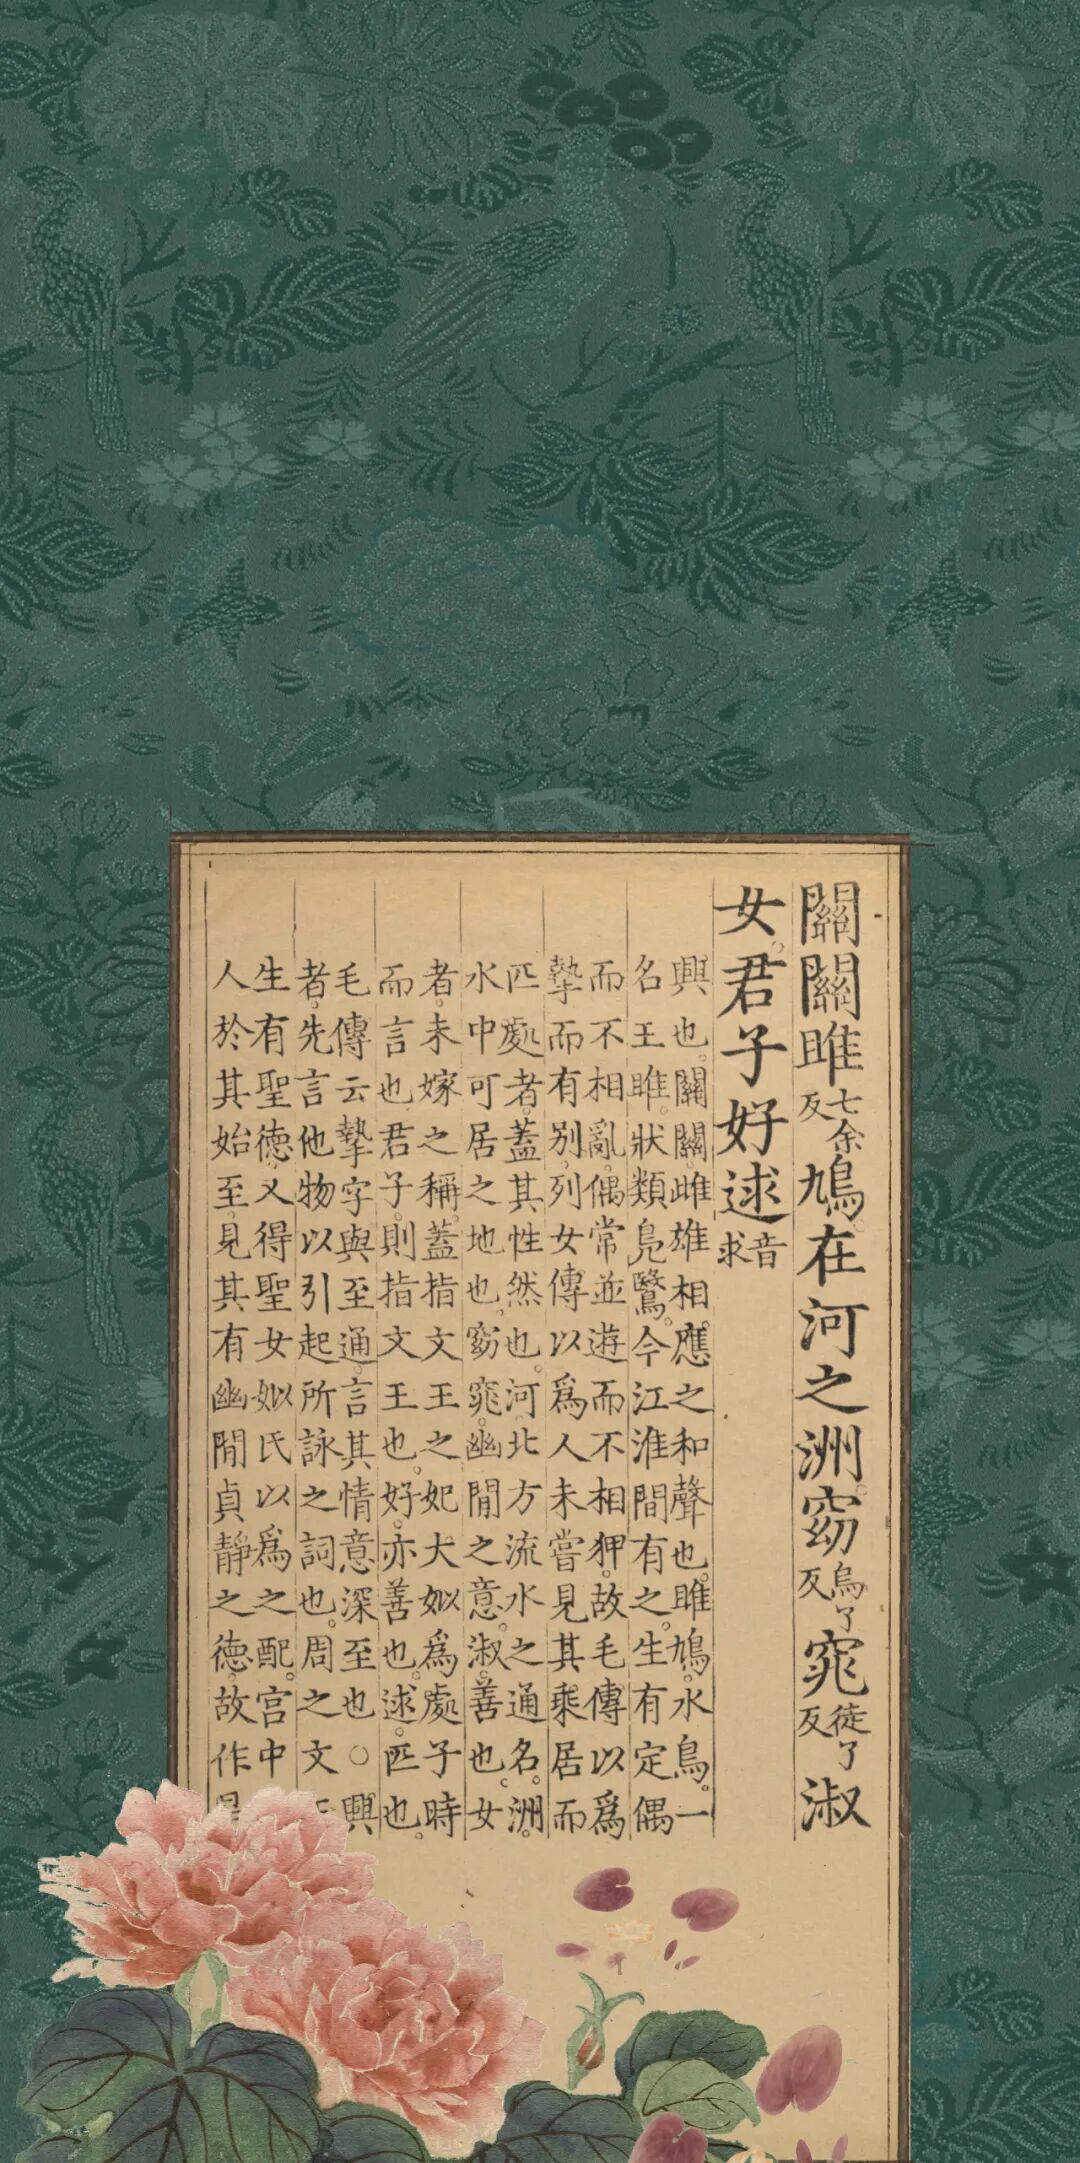 關關雎七余反鳩。在河之洲。窈烏了反窕徒了反淑
女。君子好逑音求
興也。關關。雌雄相應之和聲也。雎鳩。水鳥。一
名王雎。狀類鳧鷖。今江淮間有之。生有定偶
而不相亂。偶常並遊而不相狎。故毛傳以爲
摯而有別。列女傳以爲人未嘗見其乘居而
匹處者。蓋其性然也。河。北方流水之通名。洲。
水中可居之地也。窈窕。幽閒之意。淑。善也。女
者。未嫁之稱。蓋指文王之妃大姒爲處子時
而言也。君子。則指文王也。好。亦善也。逑。匹也。
毛傳云摯字與至通。言其情意深至也。○興
者。先言他物以引起所詠之詞也。周之文
生有聖德。又得聖女姒氏以爲之配。宮中
人於其始至。見其有幽閒貞靜之德。故作